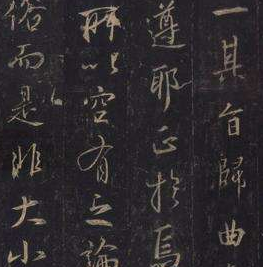 一其旨歸曲
遵耶正於焉
所以空有之論
俗而是非大小